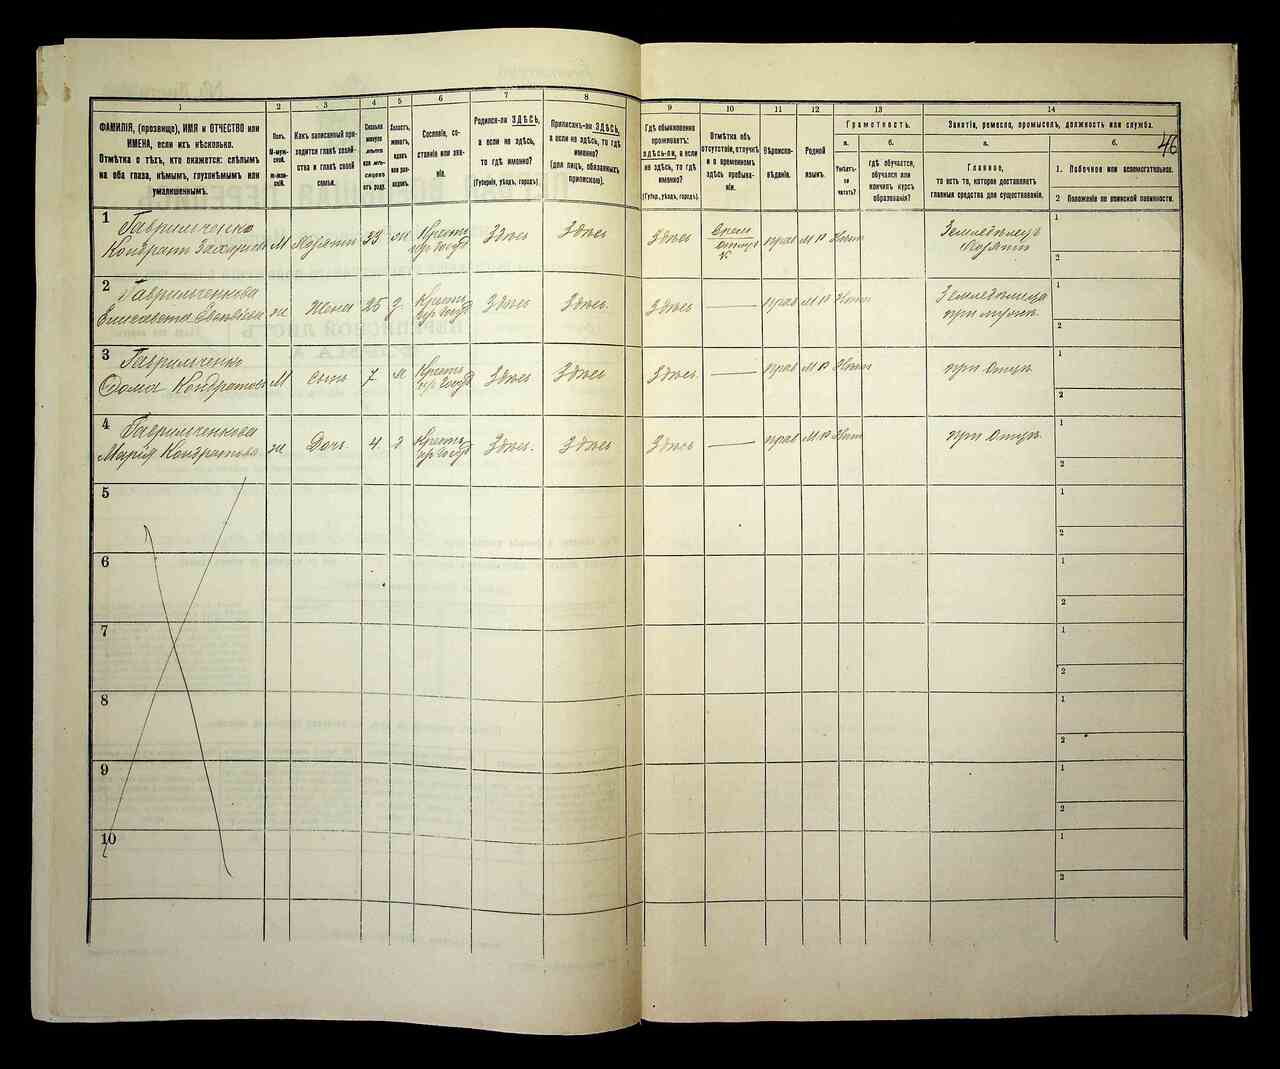 46
1 2 3 4 5 6 7 8 9 10 11 12 13 14
ФАМИЛІЯ, (прозвище), ИМЯ и ОТЧЕСТВО или
ИМЕНА, если ихъ нѣсколько.
Отмѣтка о тѣхъ, кто окажется: слѣпымъ
на оба глаза, нѣмымъ, глухонѣмымъ или
умалишеннымъ.
Полъ.
М-муж-
ской.
Ж-жен-
скій.
Какъ записанный при-
ходится главѣ хозяй-
ства и главѣ своей
семьи.
Сколько
минуло
лѣтъ
или мѣ-
сяцевъ
отъ роду.
Холостъ,
женатъ,
вдовъ
или раз-
веденъ.
Сословіе, со-
стояніе или зва-
ніе.
Родился-ли ЗДѢСЬ,
а если не здѣсь,
то гдѣ именно?
(Губернія, уѣздъ, городъ).
Приписанъ-ли ЗДѢСЬ,
а если не здѣсь, то гдѣ
именно?
(для лицъ, обязанныхъ
припискою).
Гдѣ обыкновенно
проживаетъ:
здѣсь-ли, а если
не здѣсь, то гдѣ
именно?
(Губер., уѣздъ, городъ).
Отмѣтка объ
отсутствіи, отлучкѣ
и о временномъ
здѣсь пребыва-
ніи.
Вѣроиспо-
вѣданіе.
Родной
языкъ.
Грамотность.
а.
Умѣетъ-
ли
читать?
б.
гдѣ обучается,
обучался или
кончилъ курсъ
образованія?
Занятіе, ремесло, промыселъ, должность или служба.
а.
Главное,
то есть то, которое доставляетъ
главныя средства для существованія.
б.
1. Побочное или вспомогательное.
2 Положеніе по воинской повинности.
1 Гаврильченко
Кондратъ Захаровъ М Хозяинъ 33 ж Крестьян
Здѣсь Здѣсь Здѣсь прав М Р Нѣтъ Земледѣлецъ
Хозяинъ
1
2
2 Гаврильченкова
Елисавета ж Жена 25 з Крестьян
Здѣсь Здѣсь Здѣсь — прав М Р Нѣтъ Земледѣлица
при мужѣ
1
2
3 Гаврильченко
Фома Кондратовъ М Сынъ 7 Крестьян
Здѣсь Здѣсь Здѣсь — прав М Р Нѣтъ при Отцѣ
1
2
4 Гаврильченкова
Марія Кондратова ж Дочь 4 Крестьян
Здѣсь Здѣсь Здѣсь — прав М Р Нѣтъ при Отцѣ
1
2
5
1
2
6
1
2
7
1
2
8
1
2
9
1
2
10
1
2